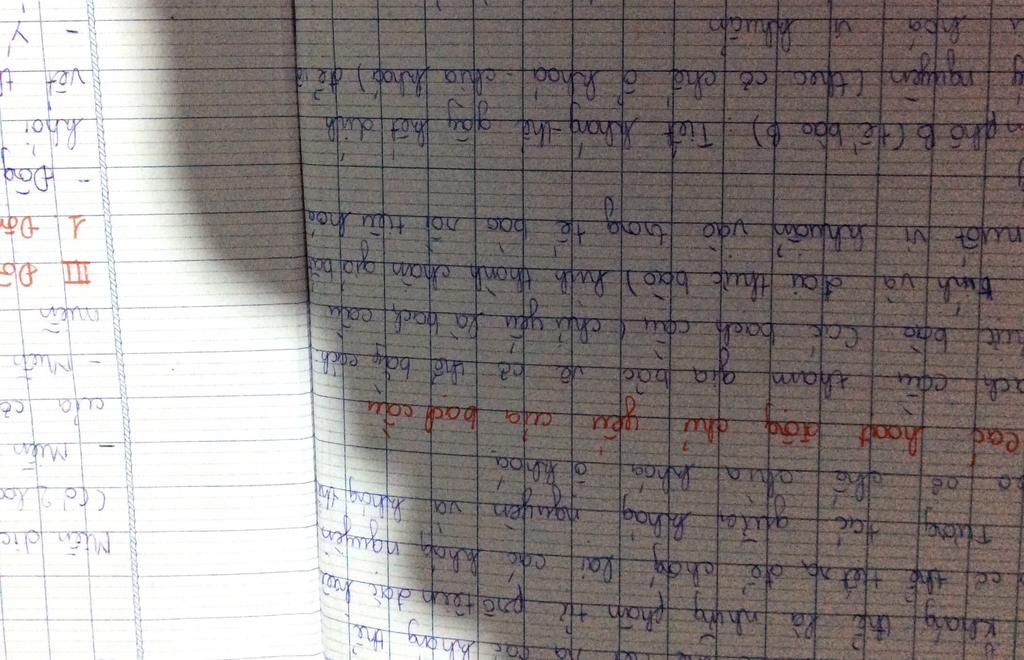 ra các kháng thể
Kháng thể là những phân tử prôtêin do các
cơ thể tiết ra để chống lại các kháng nguyên
Tương tác giữa kháng nguyên và kháng thể
cơ chế chìa khóa ổ khóa
Các hoạt động chủ yếu của bạch cầu
ạch cầu tham gia bảo vệ cơ thể bằng cách
hực bào: Các bạch cầu (chủ yếu là bạch cầu
tính và đại thực bào) hình thành chân giả bắt
nuốt vi khuẩn vào trong tế bào rồi tiêu hóa
phô B (tế bào B): Tiết kháng thể gây kết dính
nguyên (theo cơ chế ổ khóa - chìa khóa) để
hóa vi khuẩn
Miễn dịc
(Có 2 loạ
- Miễn
của cơ
- Miễn
miễn
III Đô
1 Đôn
- Đông
khỏi
vết th
- Y